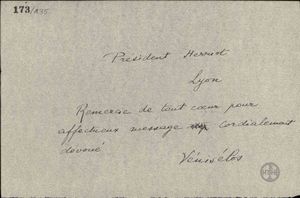 173/135
Président Herriot
Lyon
Remercie de tout cœur pour
affectueux message cordialement
dévoué
Vénisélos